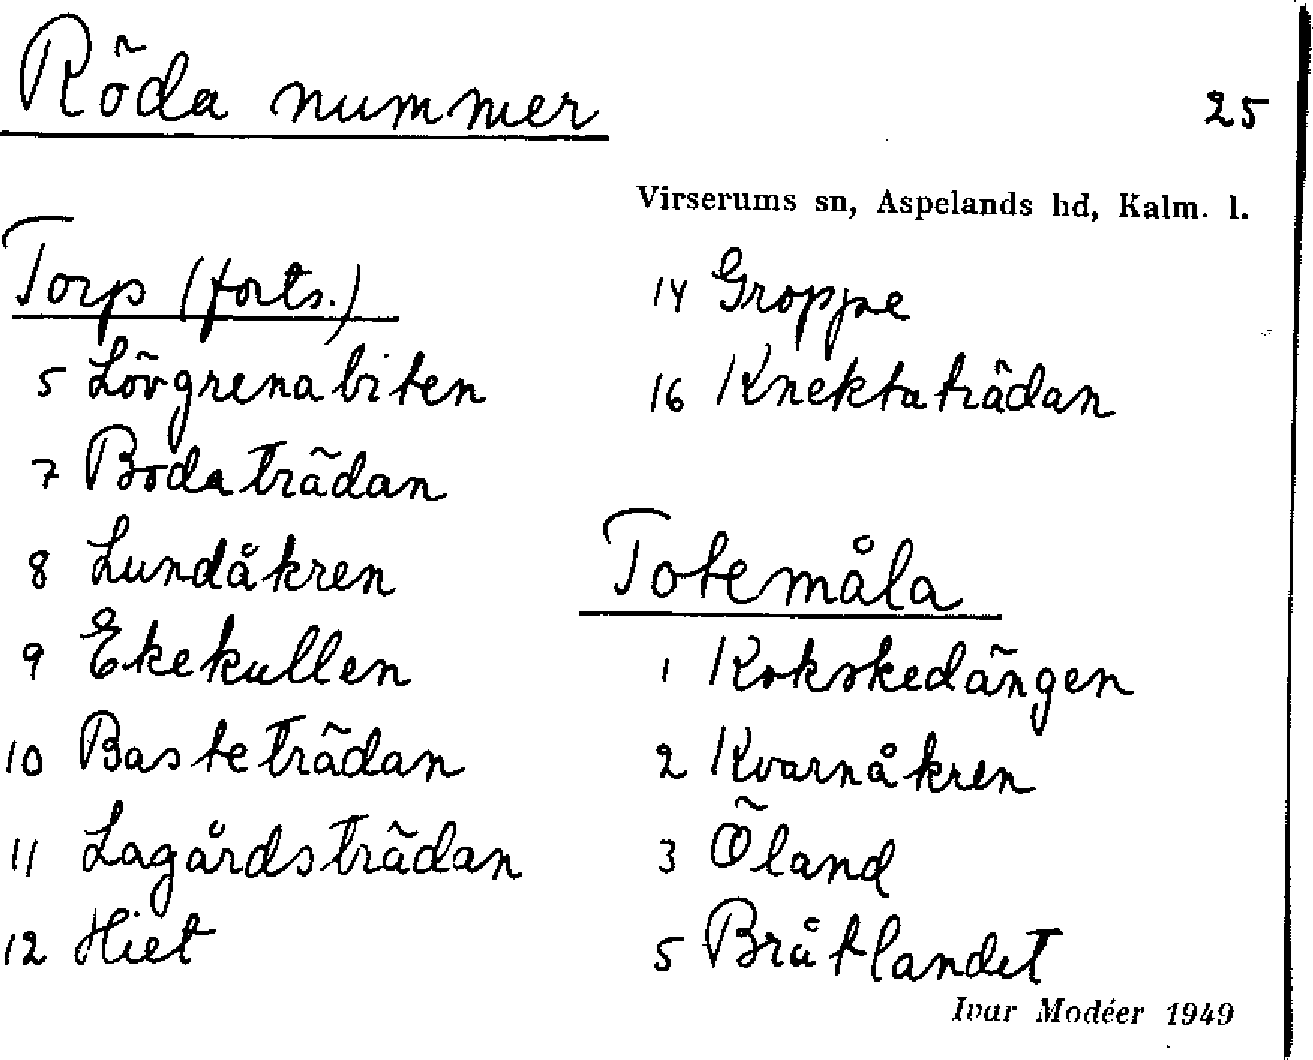 Röda nummer
25
Virserums sn, Aspelands hd, Kalm. l.
Torp (forts.)
5 Lövgrenabiten
7 Bodaträdan
8 Lundåkren
9 Ekekullen
10 Basteträdan
11 Lagårdsträdan
12 Hiet
14 Groppe
16 Knektaträdan
Totemåla
1 Kokskedängen
2 Kvarnåkren
3 Öland
5 Bråtlandet
Ivar Modéer 1949